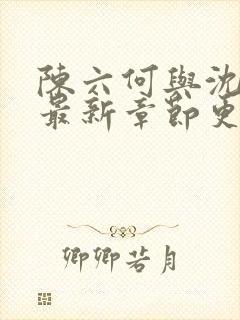 陳六何與沈
最新章節更
卿卿若月